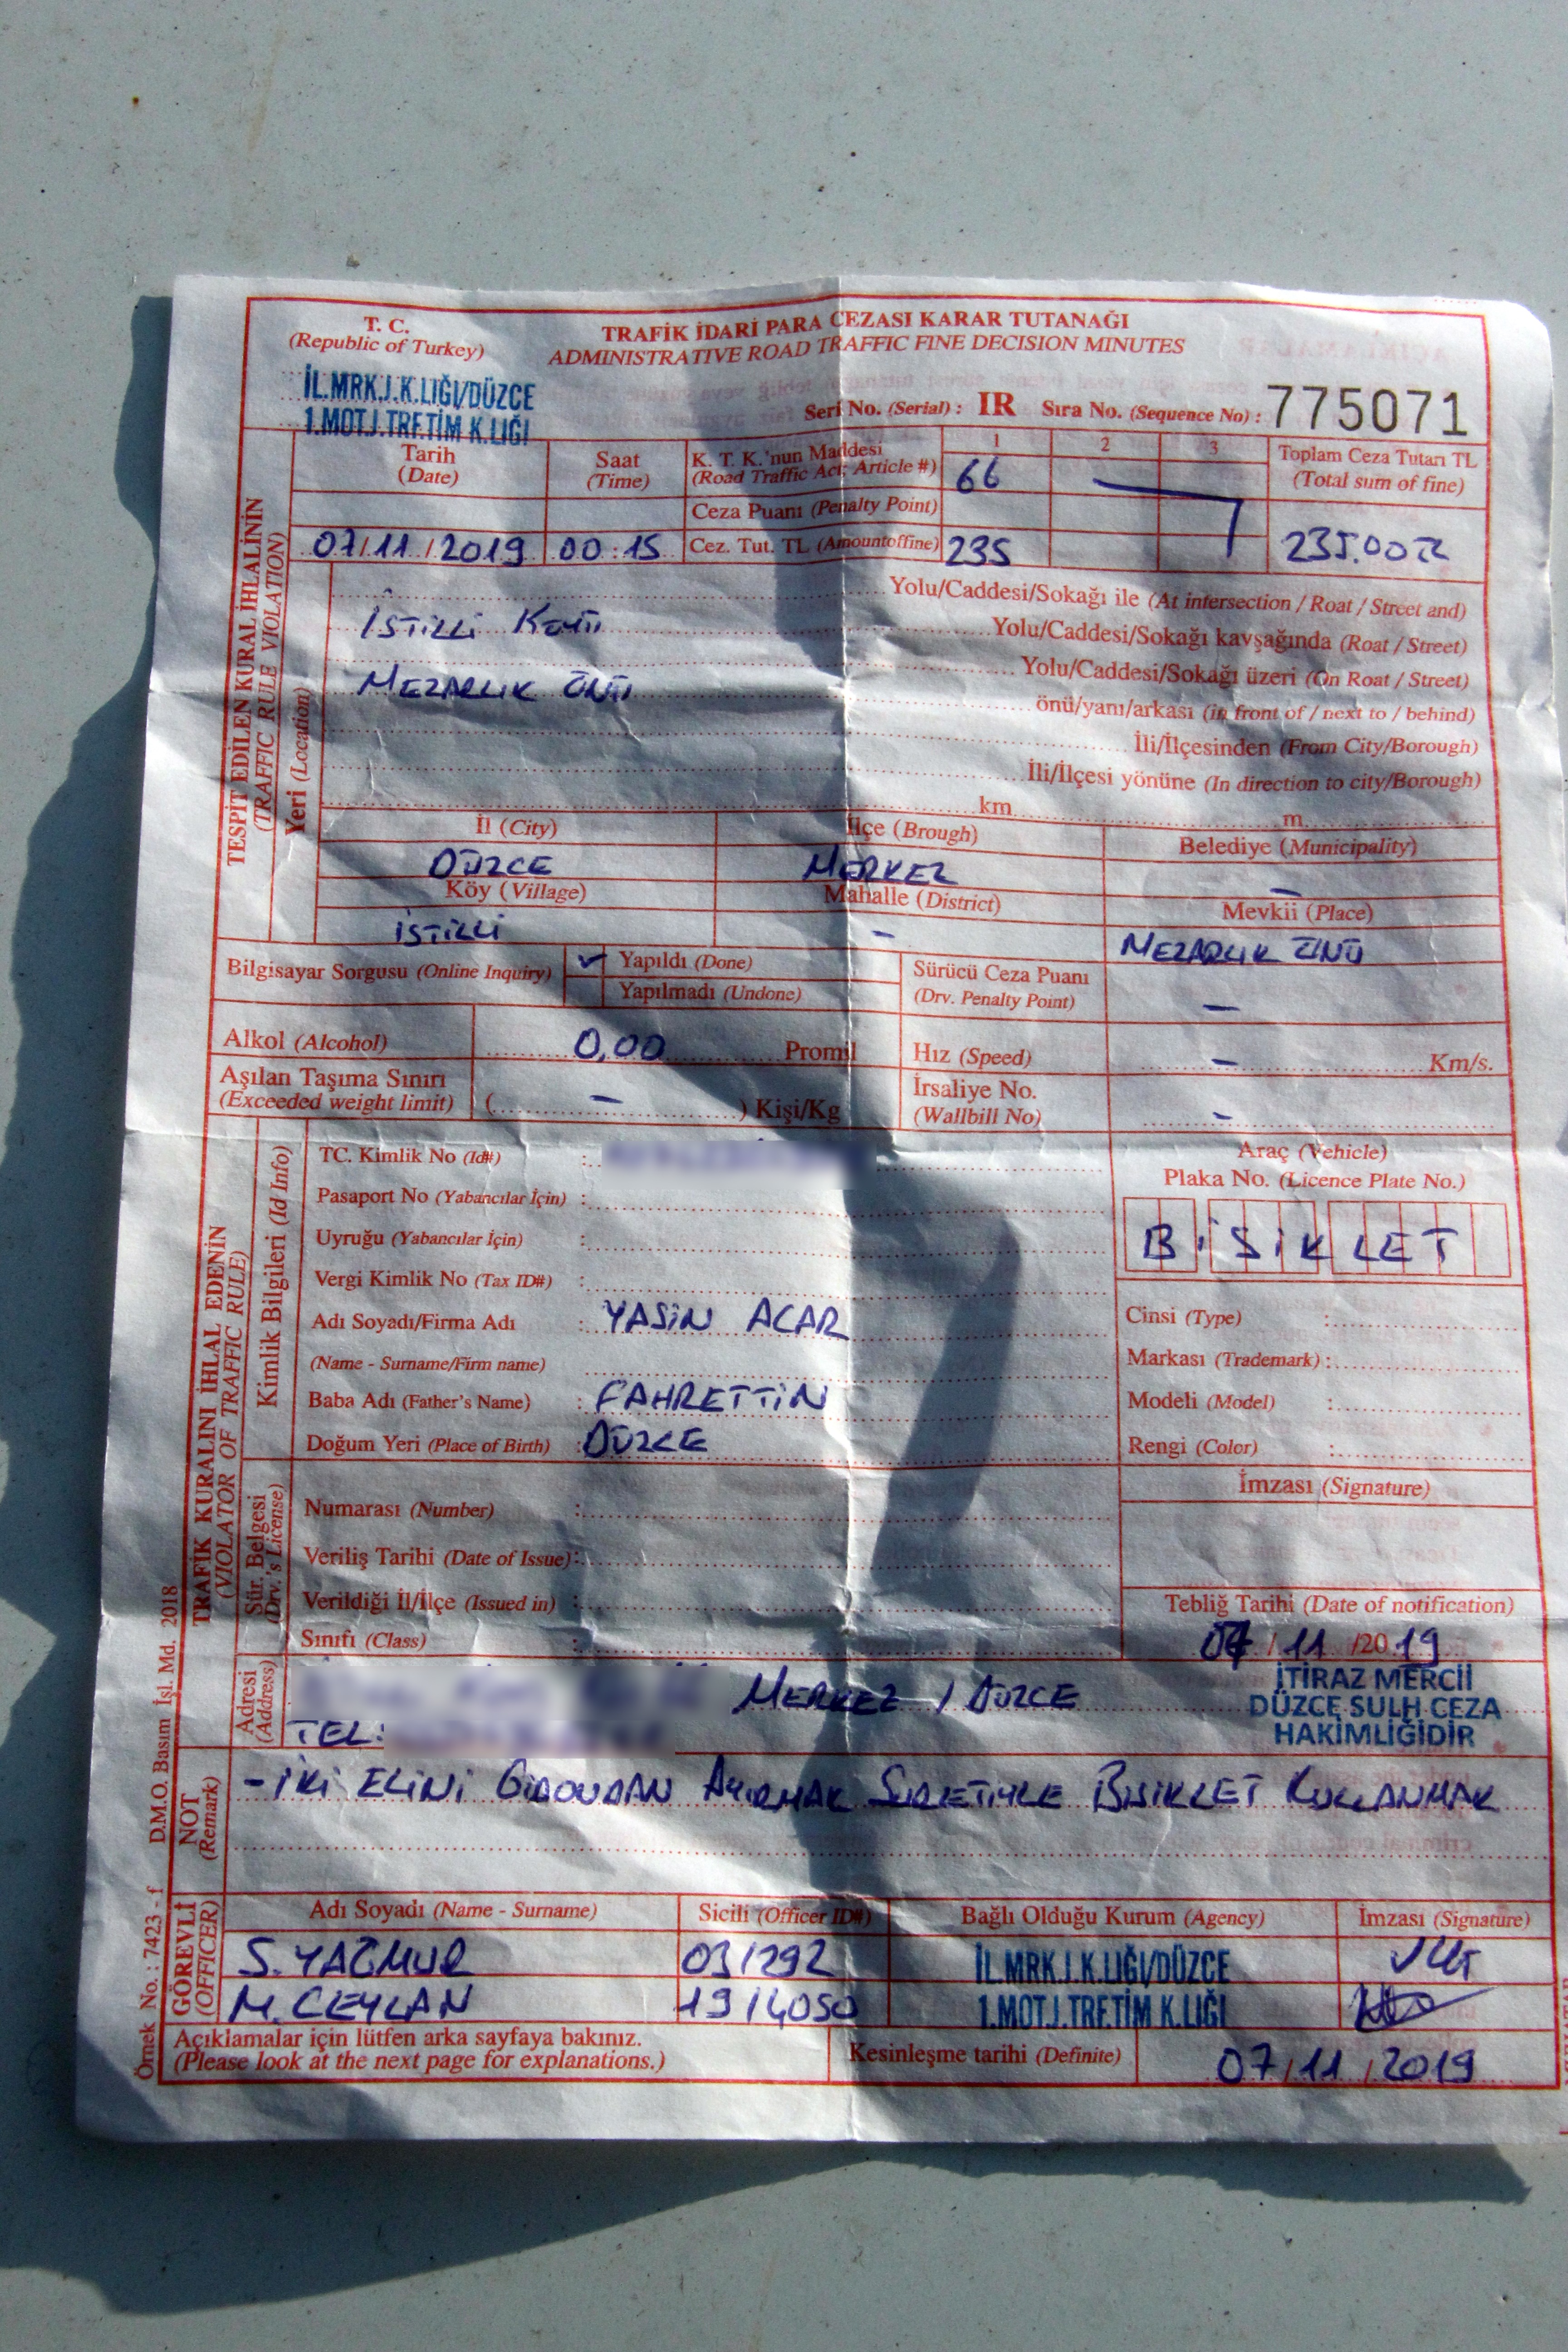 T. C.
(Republic of Turkey)
TRAFİK İDARİ PARA CEZASI KARAR TUTANAĞI
ADMINISTRATIVE ROAD TRAFFIC FINE DECISION MINUTES
İL.MRK.J.K.LIĞI/DÜZCE
1.MOT.J.TRF.TİM K.LIĞI
Seri No. (Serial) : IR Sıra No. (Sequence No) : 775071
TESPİT EDİLEN KURAL İHLALİNİN
(TRAFFIC RULE VIOLATION)
Tarih
(Date)
Saat
(Time)
K. T. K.'nun Maddesi
(Road Traffic Act; Article #)
1 2 3
66
Toplam Ceza Tutarı TL
(Total sum of fine)
Ceza Puanı (Penalty Point)
07/11/2019 00:15 Cez. Tut. TL (Amountoffine) 235 235.00 TL
Yeri (Location)
Yolu/Caddesi/Sokağı ile (At intersection / Roat / Street and)
İSTİLLİ KÖYÜ
Yolu/Caddesi/Sokağı kavşağında (Roat / Street)
Yolu/Caddesi/Sokağı üzeri (On Roat / Street)
MEZARLIK ÖNÜ
önü/yanı/arkası (in front of / next to / behind)
İli/İlçesinden (From City/Borough)
İli/İlçesi yönüne (In direction to city/Borough)
km m
İl (City) İlçe (Brough) Belediye (Municipality)
DÜZCE MERKEZ –
Köy (Village) Mahalle (District) Mevkii (Place)
İSTİLLİ – MEZARLIK ÖNÜ
Bilgisayar Sorgusu (Online Inquiry) ✓ Yapıldı (Done)
Yapılmadı (Undone)
Sürücü Ceza Puanı
(Drv. Penalty Point) –
Alkol (Alcohol) 0,00 Promil Hız (Speed) – Km/s.
Aşılan Taşıma Sınırı
(Exceeded weight limit) ( – ) Kişi/Kg
İrsaliye No.
(Wallbill No) –
TRAFİK KURALINI İHLAL EDENİN
(VIOLATOR OF TRAFFIC RULE)
Kimlik Bilgileri (Id Info)
TC. Kimlik No (Id#) :
Pasaport No (Yabancılar İçin) :
Uyruğu (Yabancılar İçin) :
Vergi Kimlik No (Tax ID#) :
Adı Soyadı/Firma Adı : YASİN ACAR
(Name - Surname/Firm name)
Baba Adı (Father's Name) : FAHRETTİN
Doğum Yeri (Place of Birth) : DÜZCE
Araç (Vehicle)
Plaka No. (Licence Plate No.)
BİSİKLET
Cinsi (Type) :
Markası (Trademark) :
Modeli (Model) :
Rengi (Color) :
Sür. Belgesi
(Drv.'s License)
Numarası (Number) :
Veriliş Tarihi (Date of Issue) :
Verildiği İl/İlçe (Issued in) :
Sınıfı (Class) :
İmzası (Signature)
Tebliğ Tarihi (Date of notification)
07/11/2019
Adresi
(Address)
MERKEZ / DÜZCE
TEL:
İTİRAZ MERCİİ
DÜZCE SULH CEZA
HAKİMLİĞİDİR
NOT
(Remark)
- İKİ ELİNİ GİDONDAN AYIRMAK SURETİYLE BİSİKLET KULLANMAK
GÖREVLİ
(OFFICER)
Adı Soyadı (Name - Surname) Sicili (Officer ID#) Bağlı Olduğu Kurum (Agency) İmzası (Signature)
S. YAĞMUR 031292 İL.MRK.J.K.LIĞI/DÜZCE
M. CEYLAN 1914050 1.MOT.J.TRF.TİM K.LIĞI
Açıklamalar için lütfen arka sayfaya bakınız.
(Please look at the next page for explanations.)
Kesinleşme tarihi (Definite) 07/11/2019
Örnek No. : 7423 - f D.M.O. Basım İşl. Md. 2018